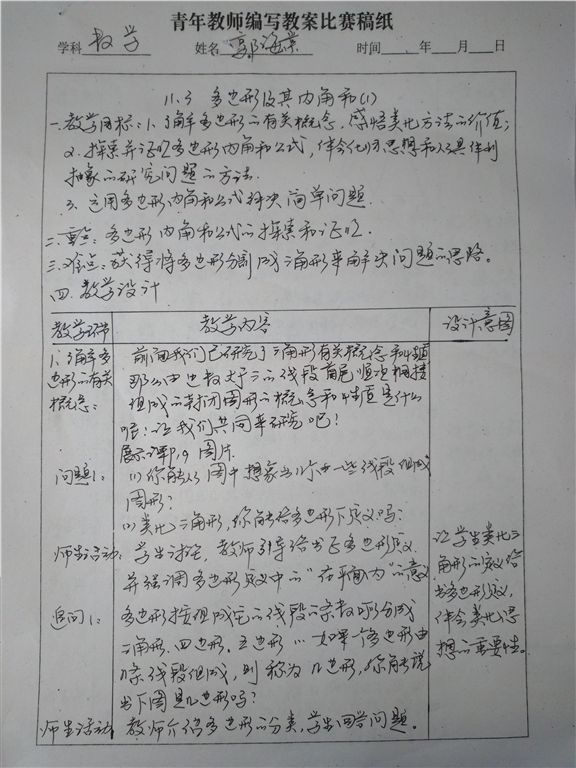 青年教师编写教案比赛稿纸
学科 数学 姓名 郭海景 时间 年 月 日
11.3 多边形及其内角和(1)
一.教学目标:1.了解多边形的有关概念,感悟类比方法的价值;
2.探索并证明多边形内角和公式,体会化归思想和从具体到
抽象的研究问题的方法.
3.运用多边形内角和公式解决简单问题.
二.重点:多边形内角和公式的探索和证明.
三.难点:获得将多边形分割成三角形来解决问题的思路。
四.教学设计
教学环节 教学内容 设计意图
1.了解多
边形的有关
概念:
前面我们已研究了三角形有关概念和性质
那么由边数大于三的线段首尾顺次相接
组成的封闭图形的概念和性质是什么
呢?让我们共同来研究吧!
展示课件,9图片.
问题1:
(1)你能从图中想象出几个由一些线段组成
图形?
(2)类比三角形,你能给多边形下定义吗?
师生活动:
学生讨论,教师引导给出多边形定义
并强调多边形定义中的"在平面内"的意义
追问1:
多边形按组成它的线段的条数可分成
三角形.四边形.五边形…如果一个多边形由
n条线段组成,则称为n边形,你能说
出下图是几边形吗?
师生活动
教师介绍多边形的分类,学生回答问题。
让学生类比三
角形的定义给
出多边形定义,
体会类比思
想的重要性。